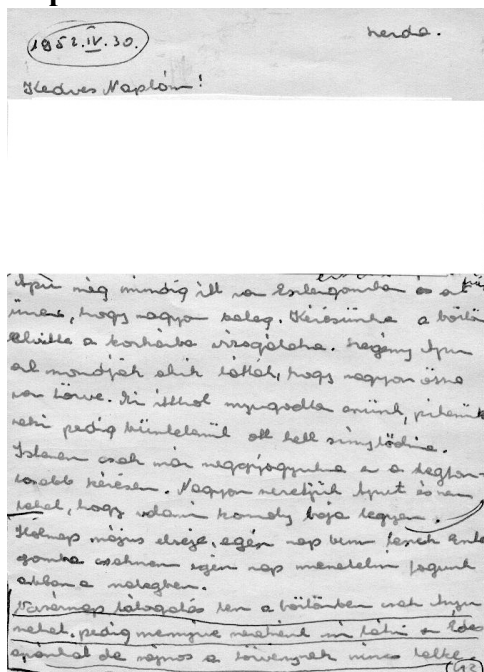 1952.IV.30. szerda.
Kedves Naplóm!
Apu még mindig itt van Esztergomba és azt
üzente, hogy nagyon beteg. Kérésünkre a börtön
elvitte a kórházba vizsgálatra. Szegény Apura
azt mondják akik látták, hogy nagyon össze
van törve. Mi itthol nyugodtan eszünk, pihenünk
neki pedig büntetlenül ott kell sínylődnie.
Istenem csak már meggyógyulna ez a legfon-
tosabb kérésem. Nagyon szeretjük Aput és nem
lehet, hogy valami komoly baja legyen.
Holnap május elseje, egész nap benn leszek Eszter-
gomba csaknem egész nap menetelni fogunk
abban a melegben.
Vasárnap látogatás lesz a börtönben csak Anyu
mehet, pedig mennyire szeretnénk mi látni az Édes-
apánkat de sajnos a törvénynek nincs lelke.